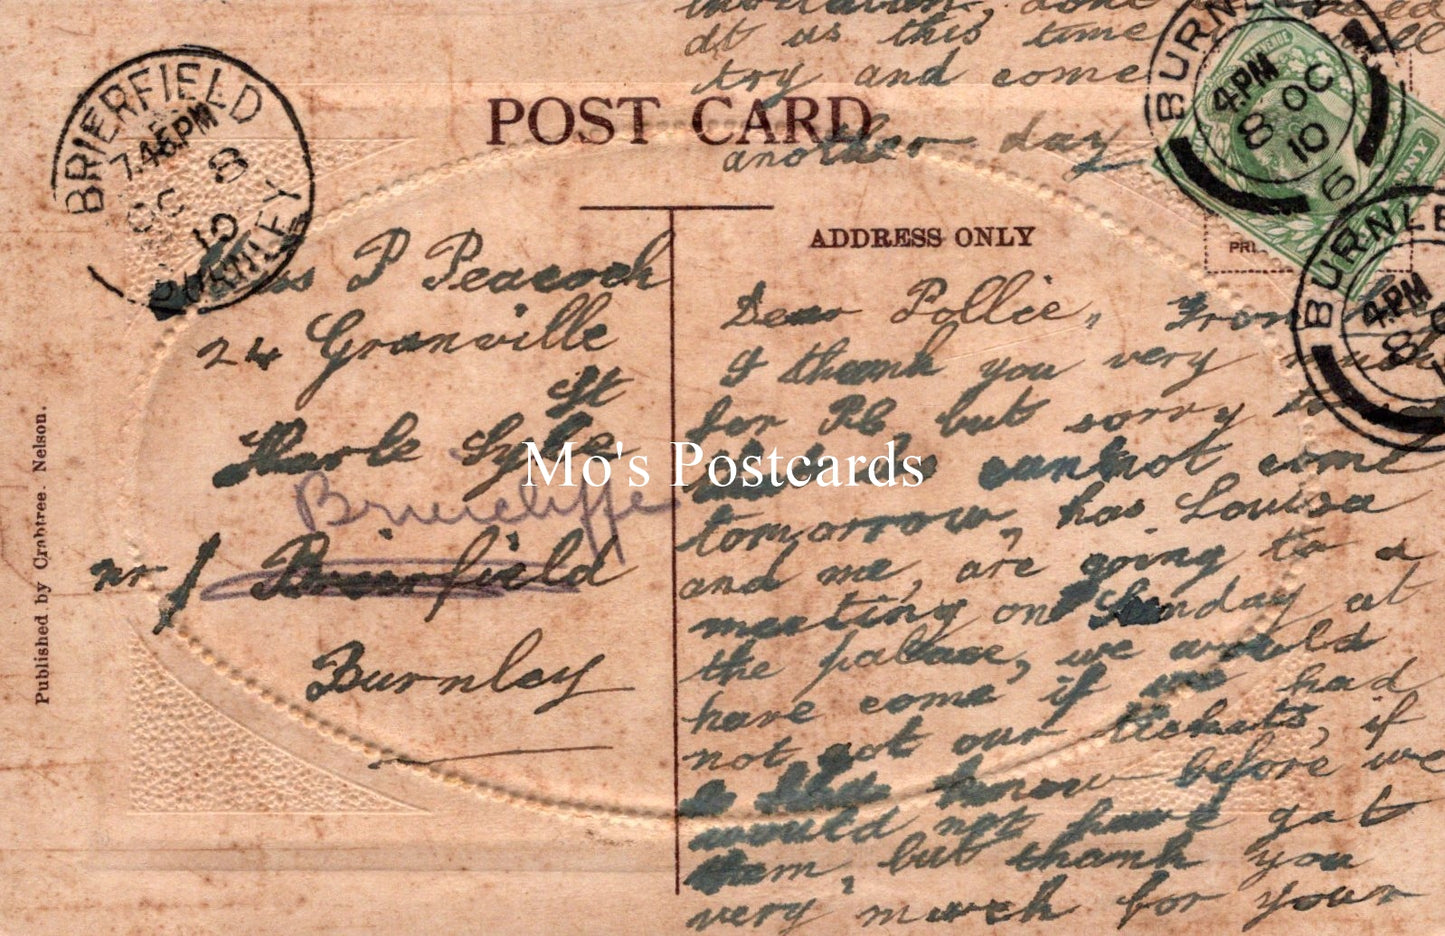 POST CARD
ADDRESS ONLY
Published by Crabtree. Nelson.
BRIERFIELD
7.45PM
OC 8
10
BURNLEY
BURNLEY
4.PM
8 OC
10
6
BURNLE
4.PM
8
PRI
NNY
P Peacock
24 Granville
St
Harle Syke
Briercliffe
nr Brierfield
Burnley
Dear Pollie,
I thank you very much
for P.C. but sorry to
cannot come
tomorrow, has Louisa
and me, are going to a
meeting on Sunday at
the palace, we would
have come if we had
not got our tickets, if
I had know before we
would not have got
them, but thank you
very much for your
invitation, dont
at us this time will
try and come
another day
Mo's Postcards